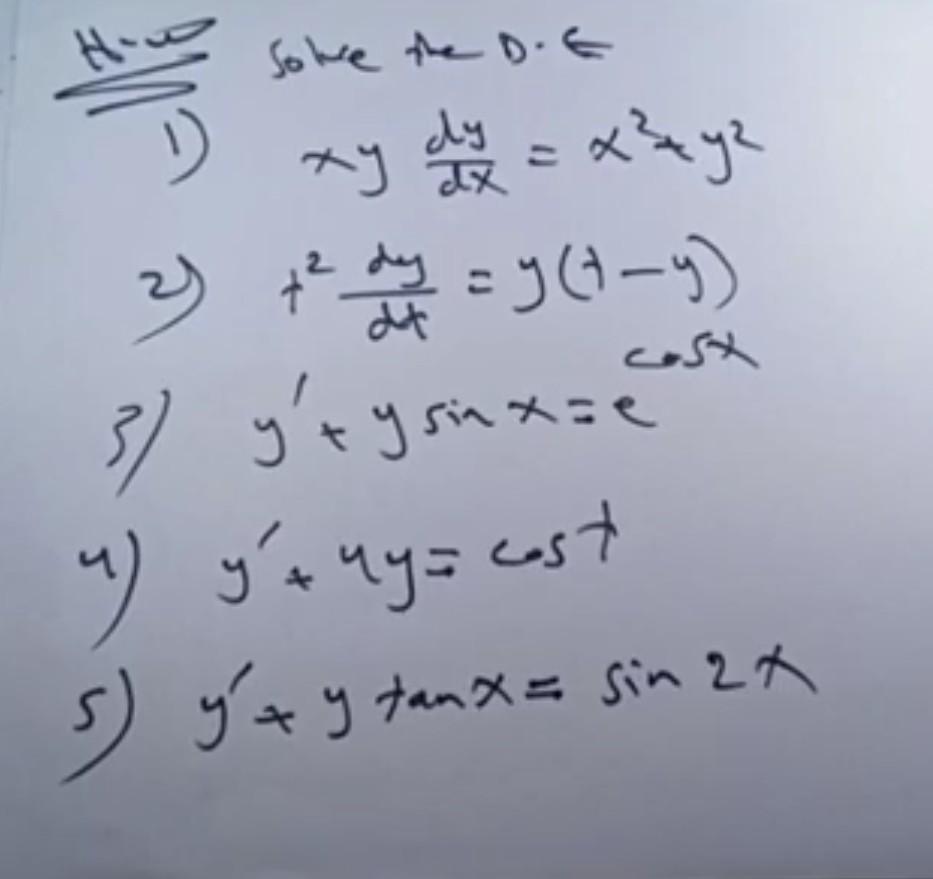 H.w Solve the D.E
1) xy dy/dx = x² + y²
2) t² dy/dt = y(t-y)
3) y' + y sin x = e^cosx
4) y' + 4y = cos t
5) y' + y tan x = sin 2x